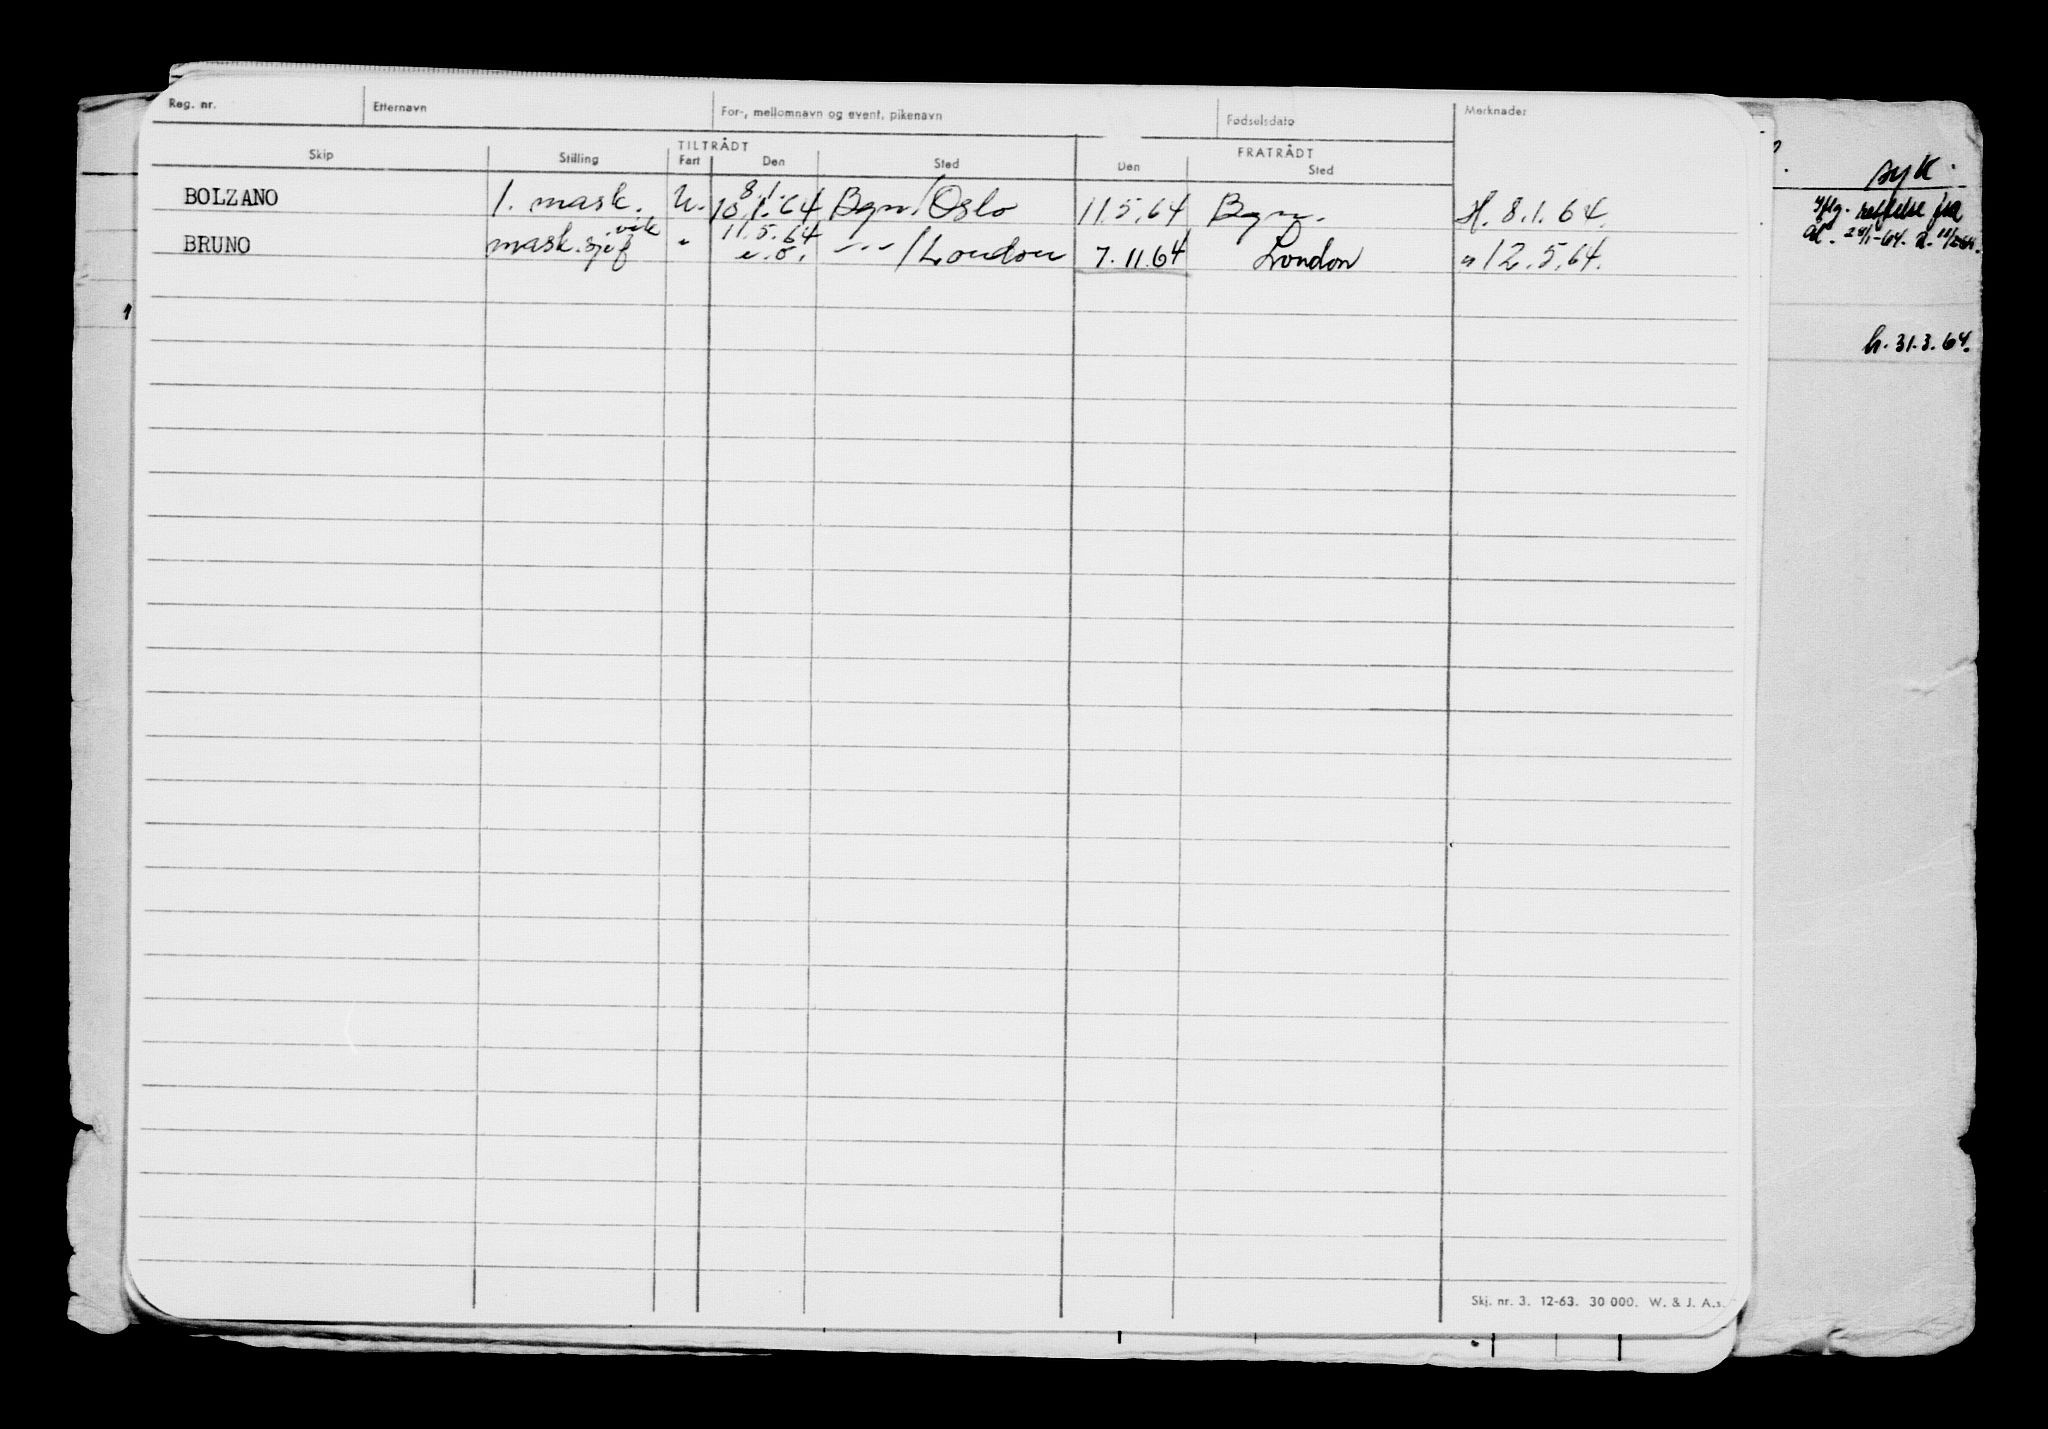 Reg. nr. Etternavn For-, mellomnavn og event. pikenavn Fødselsdato Merknader
TILTRÅDT FRATRÅDT
Skip Stilling Fart Den Sted Den Sted
8.1.
BOLZANO 1. mask. U. 10.1.64 Bgn./Oslo 11.5.64 Bgn. H. 8.1.64.
vik 11.5.64
BRUNO mask.sjef " e.o. -"- /London 7.11.64 London " 12.5.64.
syk.
rettelse fra
h. 31.3.64.
Skj. nr. 3. 12-63. 30 000. W. & J. A.s.